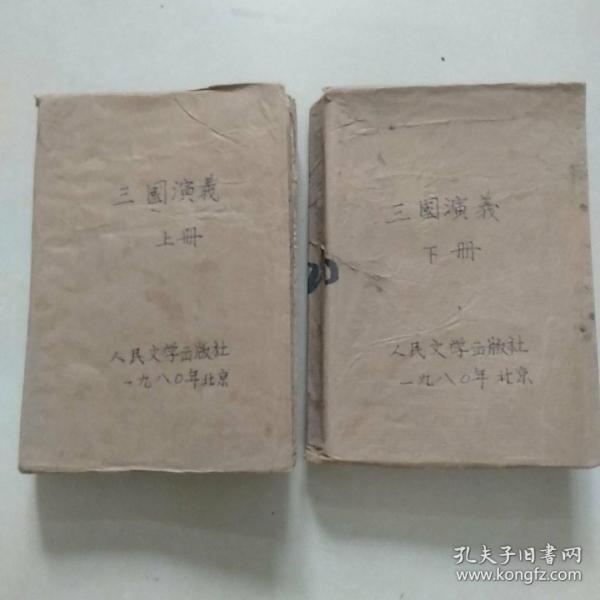 三國演義
上册
人民文学出版社
一九八〇年北京
三國演義
下册
人民文学出版社
一九八〇年北京
孔夫子旧书网
www.kongfz.com